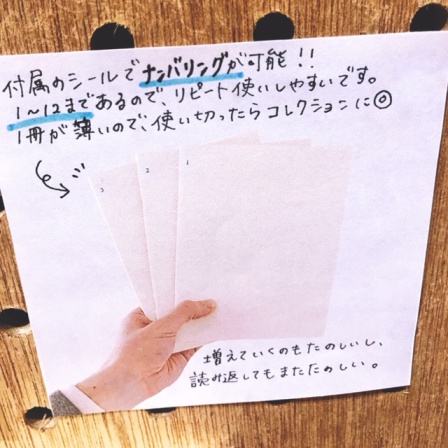 付属のシールでナンバリングが可能!!
1~12まであるので、リピート使いしやすいです。
1冊が薄いので、使い切ったらコレクションに◎
3
2
1
増えていくのもたのしいし、
読み返してもまたたのしい。